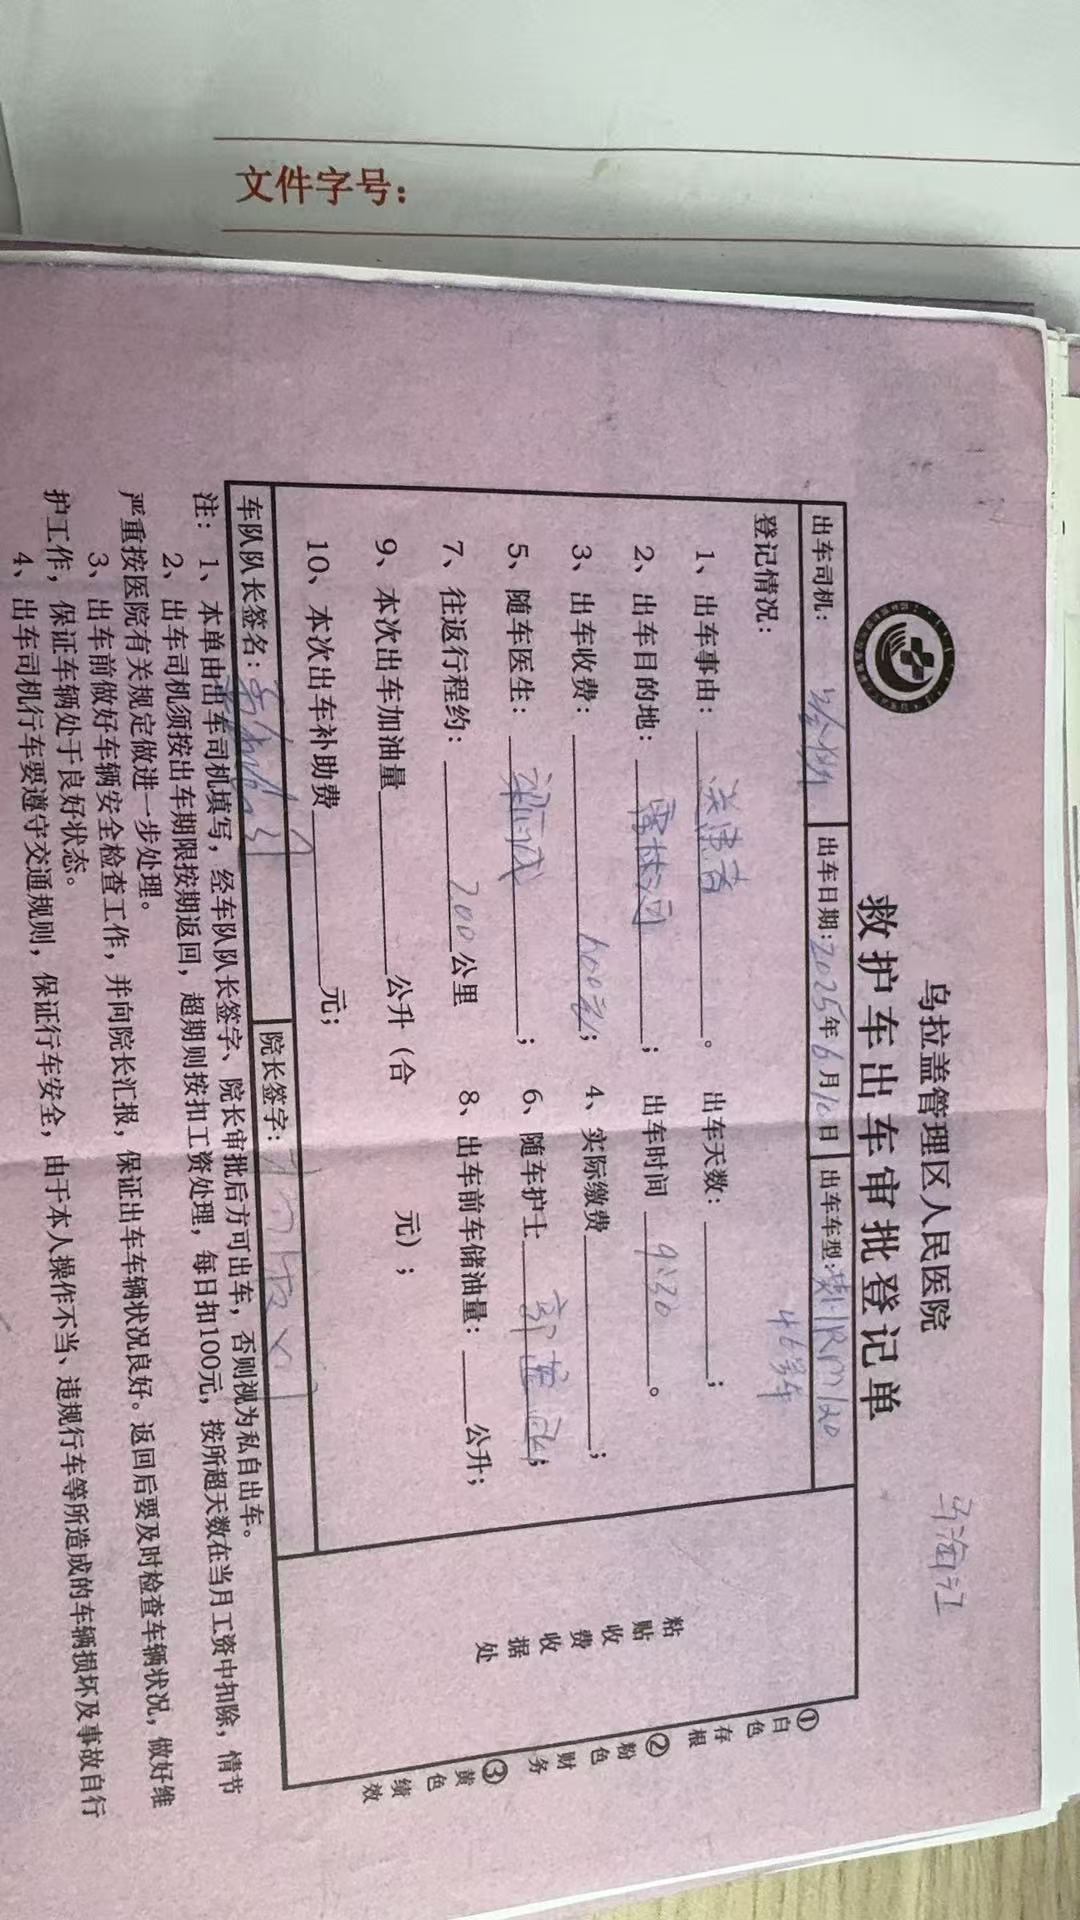 文件字号：
乌拉盖管理区人民医院
马海江
救护车出车审批登记单
出车司机： 出车日期：2025年6月10日 出车车型： HRM120
登记情况： 46号车
1、出车事由：送患者。 出车天数：；
2、出车目的地：霍林河； 出车时间 9:30。
3、出车收费：600元； 4、实际缴费；
5、随车医生：； 6、随车护士；
7、往返行程约：200公里 8、出车前车储油量：公升；
9、本次出车加油量公升（合 元）；
10、本次出车补助费元；
车队队长签名： 院长签字：
粘贴收费收据处
①白色存根 ②粉色财务 ③黄色绩效
注：1、本单由出车司机填写，经车队队长签字、院长审批后方可出车，否则视为私自出车。
2、出车司机须按出车期限按期返回，超期则按扣工资处理，每日扣100元，按所超天数在当月工资中扣除，情节
严重按医院有关规定做进一步处理。
3、出车前做好车辆安全检查工作，并向院长汇报，保证出车车辆状况良好。返回后要及时检查车辆状况，做好维
护工作，保证车辆处于良好状态。
4、出车司机行车要遵守交通规则，保证行车安全，由于本人操作不当、违规行车等所造成的车辆损坏及事故自行